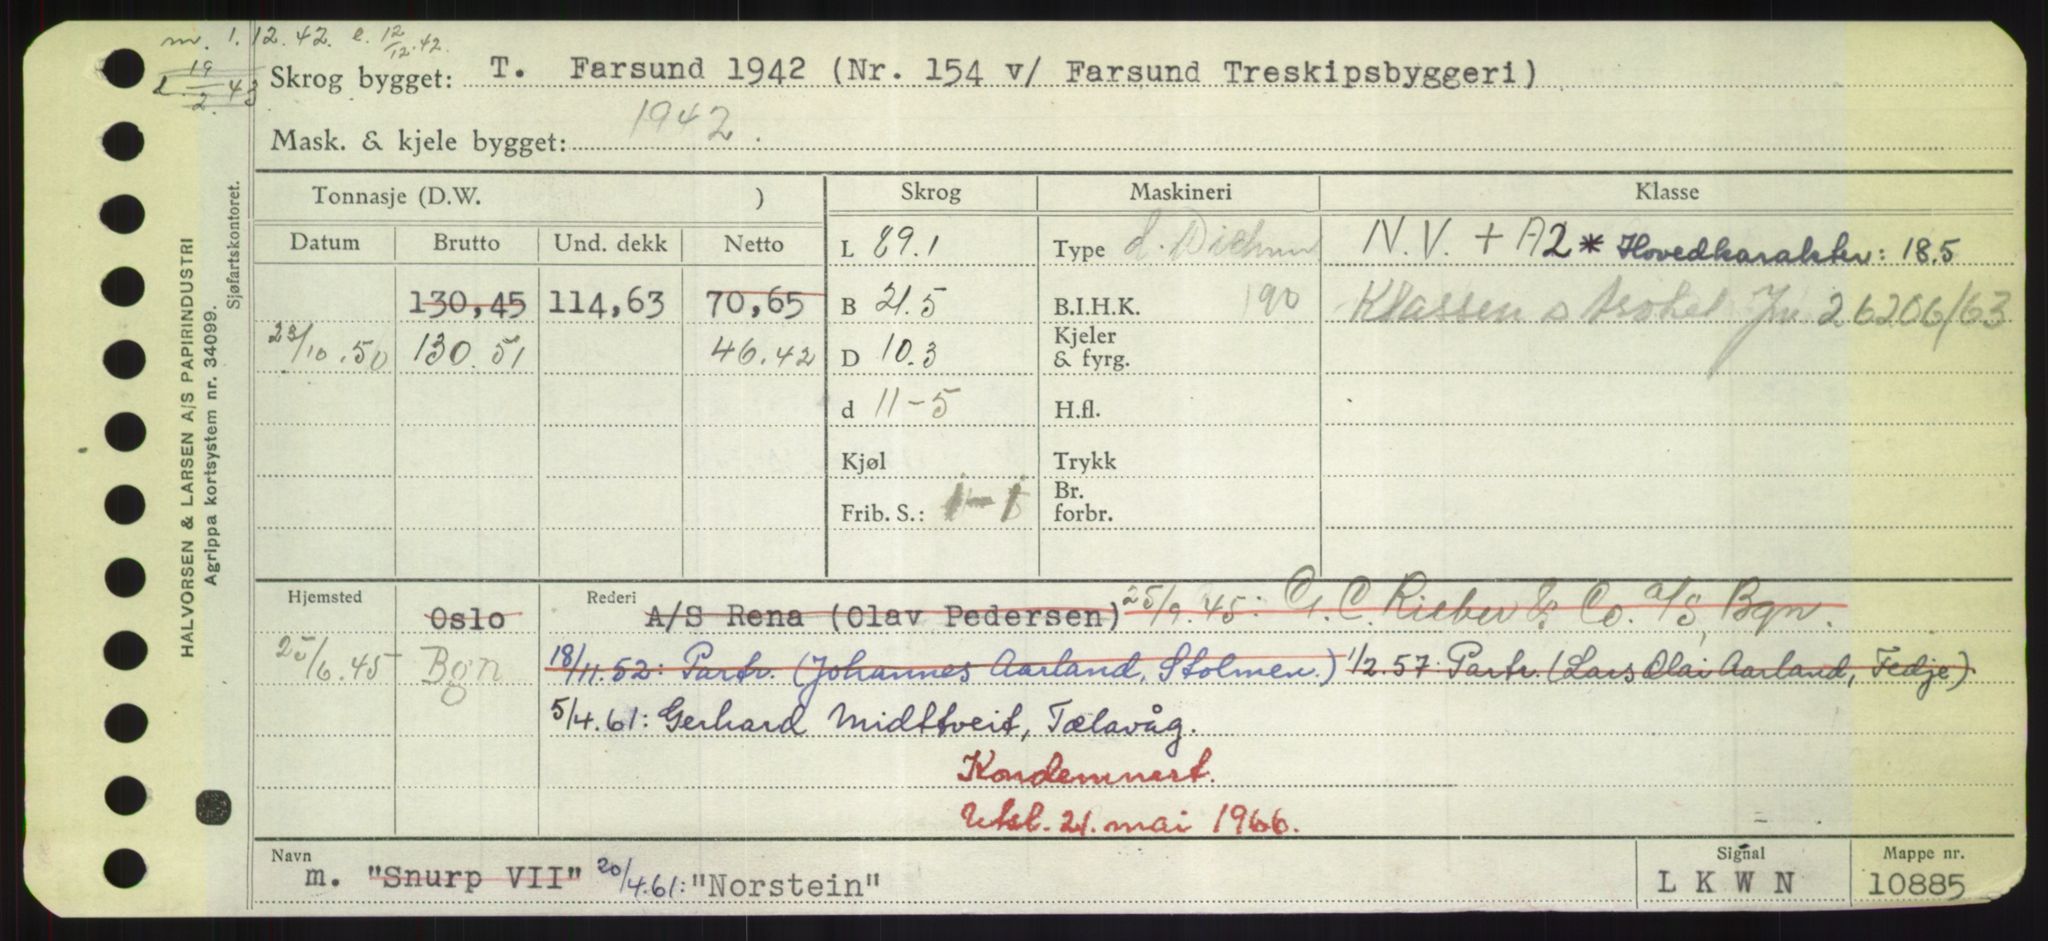 m. 1.12.42. e. 12/12.42.
19/2 43
Skrog bygget: T. Farsund 1942 (Nr. 154 v/ Farsund Treskipsbyggeri)
Mask. & kjele bygget: 1942.
Tonnasje (D.W. ) Skrog Maskineri Klasse
Datum Brutto Und. dekk Netto L 89.1 Type N.V. + A2 * Hovedkarakter: 18.5
130,45 114,63 70,65 B 21.5 B.I.H.K. 190 Klassen strøket Jnr. 26206/63
23/10.50 130.51 46.42 D 10.3 Kjeler & fyrg.
d 11-5 H.fl.
Kjøl Trykk
Frib. S.: 1-1 Br. forbr.
Hjemsted Oslo Rederi A/S Rena (Olav Pedersen) 25/9.45: G.C. Rieber & Co. A/S, Bgn.
25/6.45 Bgn 18/11.52: Partr. (Johannes Aarland, Stolmen.) 1/2.57: Partr. (Lars Olai Aarland, Fedje)
5/4.61: Gerhard Midttveit, Tælavåg.
Kondemnert.
Utsl. 21. mai 1966.
Navn m. "Snurp VII" 20/4.61: "Norstein" Signal L K W N Mappe nr. 10885
HALVORSEN & LARSEN A/S PAPIRINDUSTRI
Agrippa kortsystem nr. 34099.
Sjøfartskontoret.